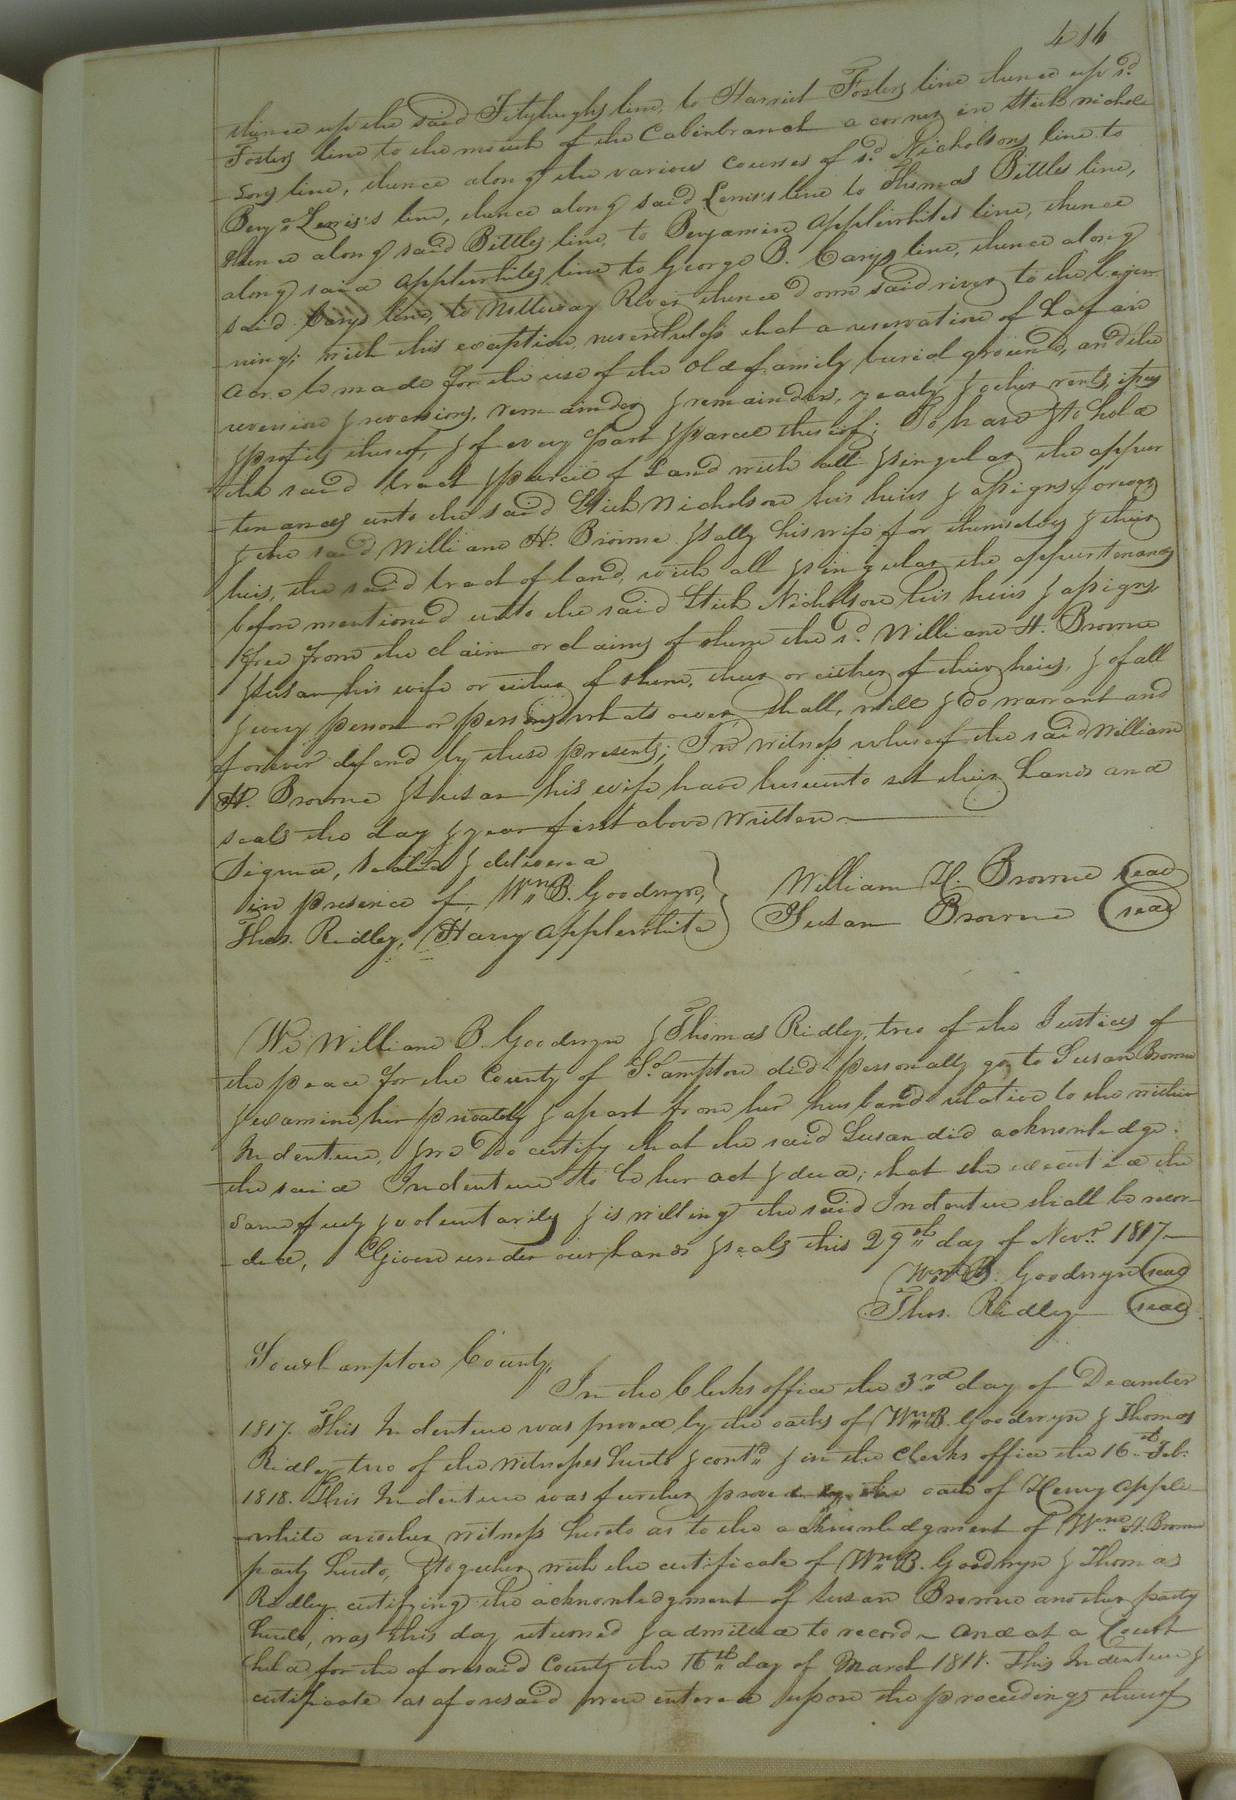 416
thence up the said Fitzhughs line to Harriet Fosters line thence up sd.
Fosters line to the mouth of the Cabinbranch a corner in Stith Nichol
sons line, thence along the various courses of sd. Nicholsons line to
Benja. Lewis's line, thence along said Lewis's line to Thomas Bittles line,
thence along said Bittles line, to Benjamin Applewhites line, thence
along said Applewhites line to George B. Carys line, thence along
said Carys line, to Nottoway River thence down said river to the begin
ning; with this exception, nevertheless that a reservation of half an
acre be made for the use of the old family burial ground, and the
reversion & reversions, remainder & remainders, yearly & other rents, issues
& profits thereof, & of every part & parcel thereof; To have & to hold
the said tract & parcel of Land with all & singular the appur
tenances unto the said Stith Nicholson his heirs & assigns forever
& the said William H. Browne & Sally his wife for themselves & their
heirs, the said tract of land, with all & singular the appurtenances
before mentioned unto the said Stith Nicholson his heirs & assigns,
free from the claim or claims of them the sd. William H. Browne
& Susan his wife or either of them, their or either of their heirs, & of all
& every person or persons whatsoever shall, will & do warrant and
forever defend by these presents; In witness whereof the said William
H. Browne & Susan his wife have hereunto set their hands and
seals the day & year first above written
Signed, sealed & delivered
in presence of, Wm. B. Goodwyn,
Thos. Ridley, Harry Applewhite
William H. Browne seal
Susan Browne seal
We William B. Goodwyn & Thomas Ridley, two of the Justices of
the peace for the County of So.ampton did personally go to Susan Browne
& examine her privately & apart from her husband relative to the within
Indenture, & we do certify that the said Susan did acknowledge
the said Indenture to be her act & deed; that she executed the
same freely & voluntarily & is willing the said Indenture shall be recor
ded, Given under our hands & seals this 29th day of Novr. 1817
Wm. B. Goodwyn seal
Thos. Ridley seal
Southampton County,
In the Clerks office the 3rd day of December
1817. This Indenture was proved by the oaths of Wm. B. Goodwyn & Thomas
Ridley two of the witnesses hereto & contd. & in the Clerks office the 16th Feb:
1818. This Indenture was further proved by the oath of Henry Apple
white another witness hereto as to the acknowledgment of Wm. H. Browne
party hereto, & together with the certificate of Wm. B. Goodwyn & Thomas
Ridley certifying the acknowledgment of Susan Browne another party
hereto, was this day returned & admitted to record And at a Court
held for the aforesaid County the 16th day of March 1818. This Indenture &
certificate as aforesaid were entered upon the proceedings thereof